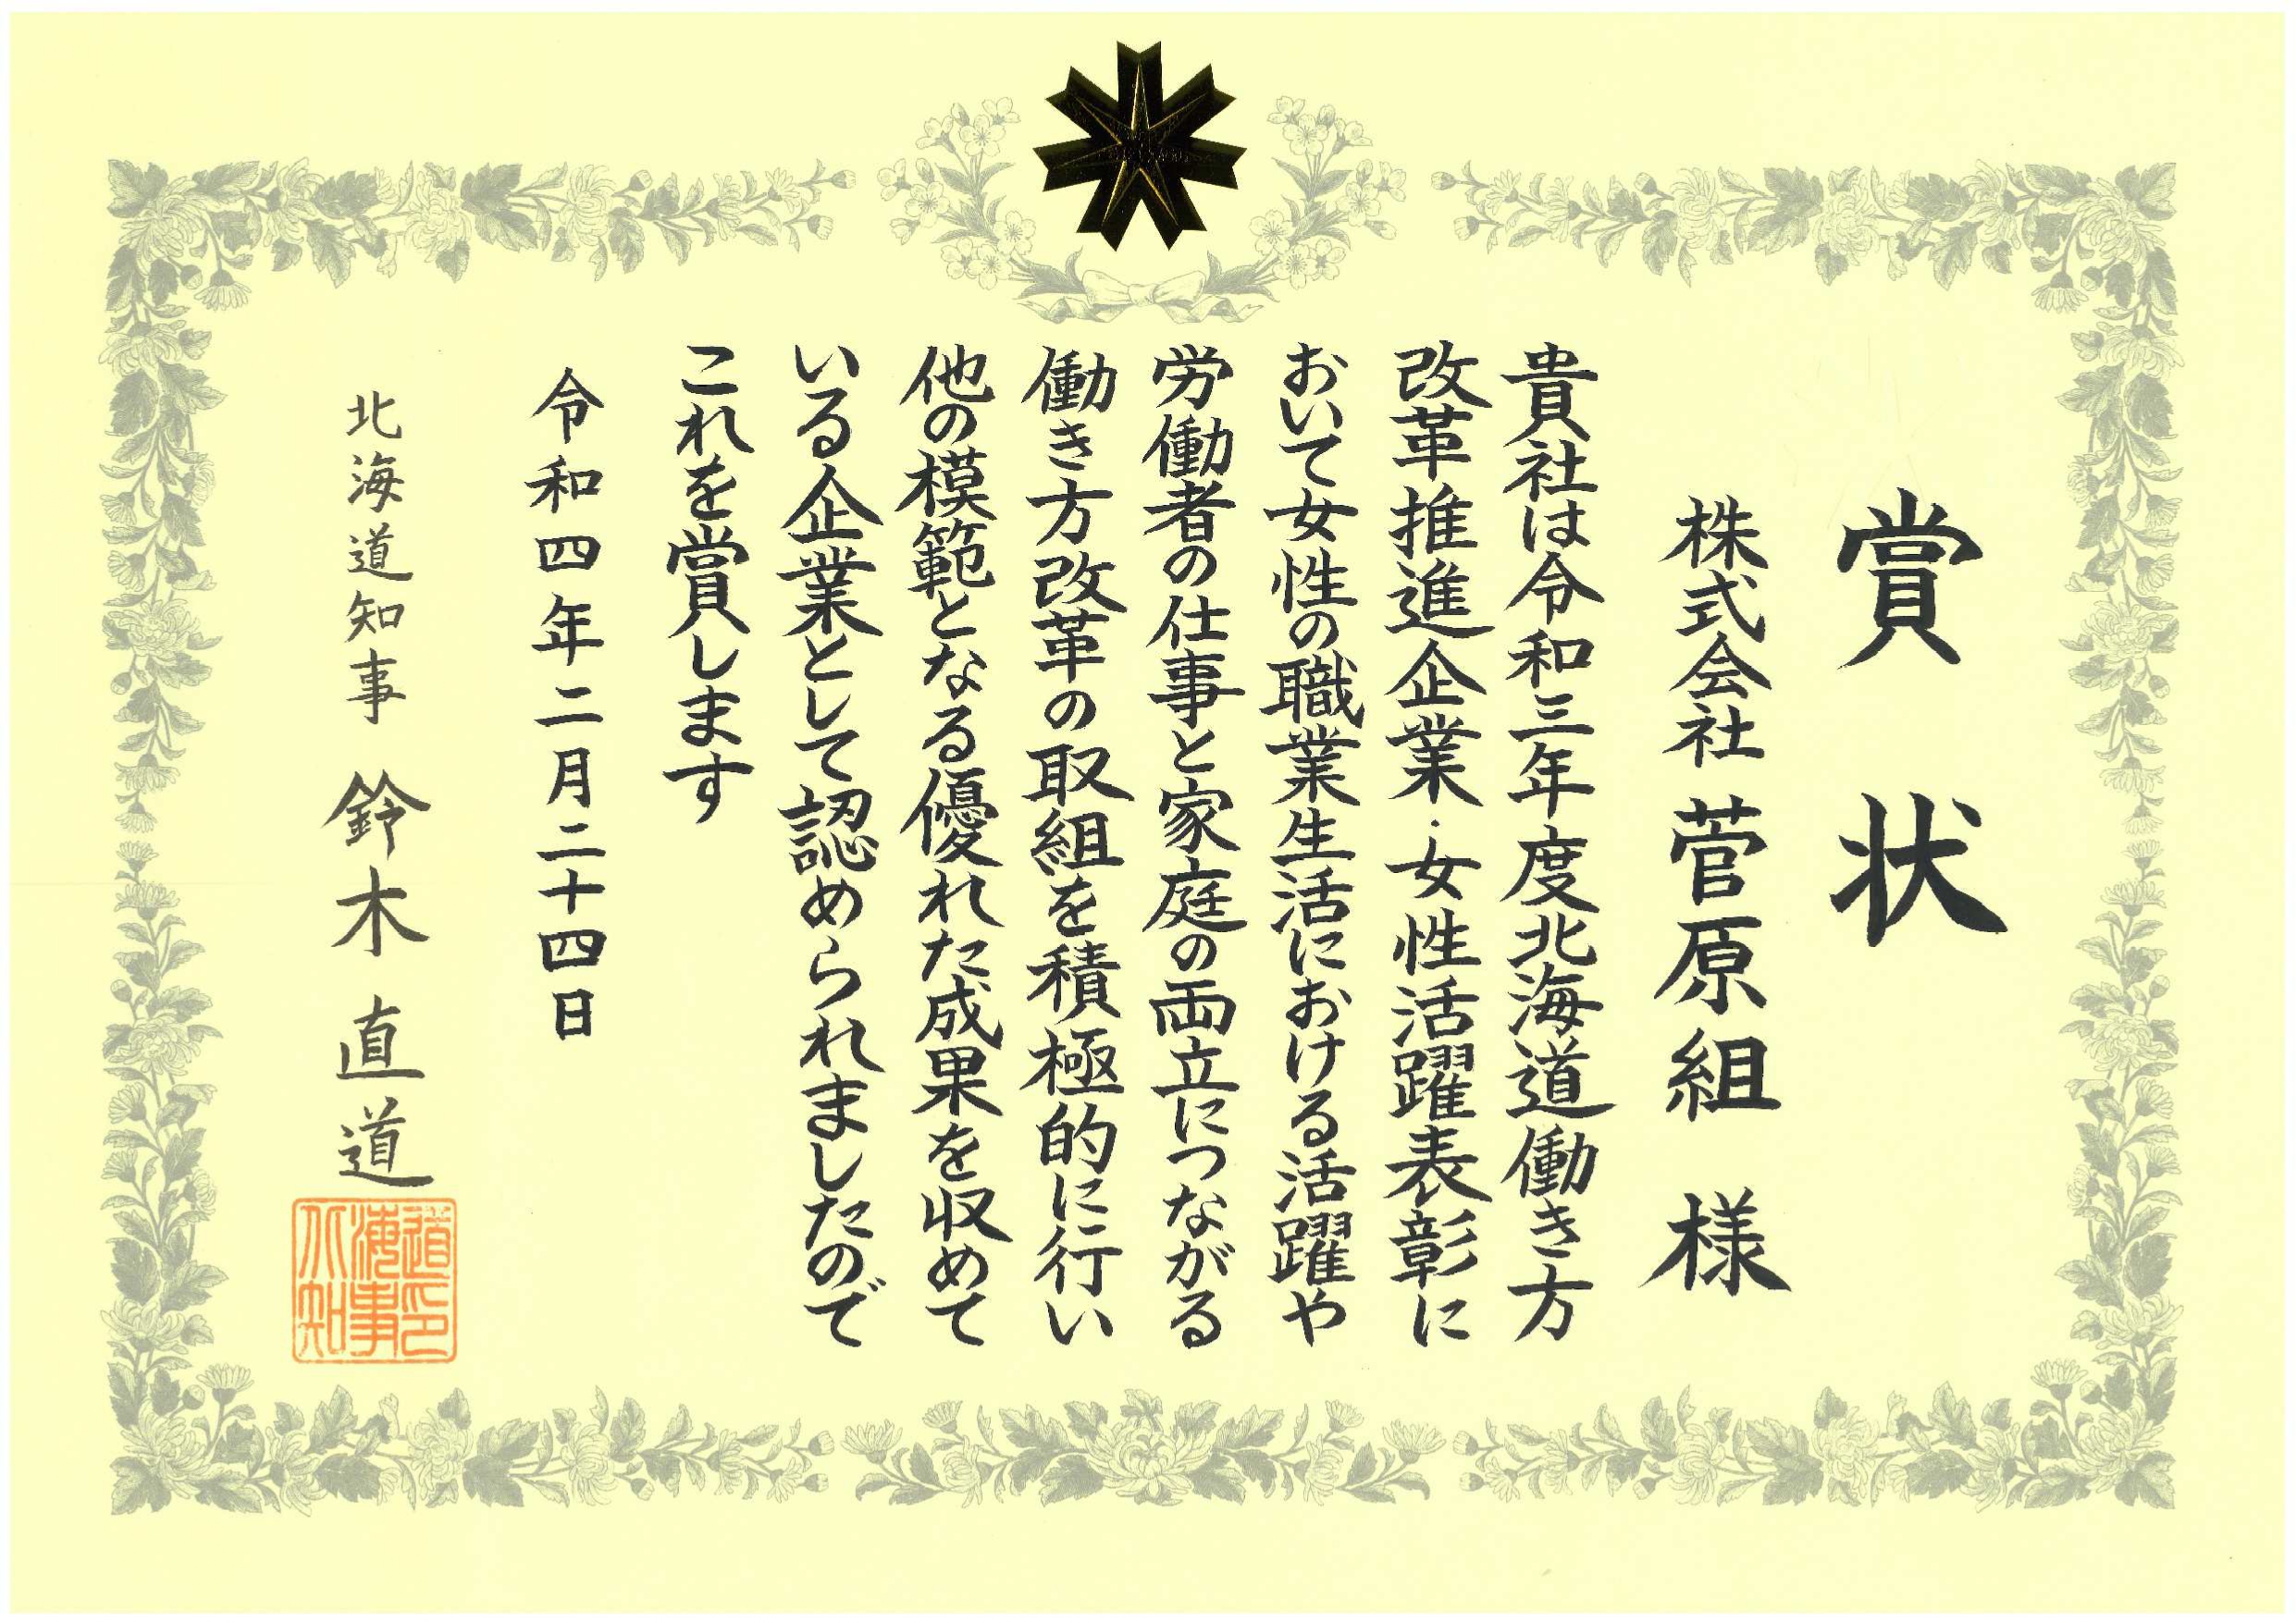 賞状
株式会社 菅原組 様
貴社は令和三年度北海道働き方
改革推進企業・女性活躍表彰に
おいて女性の職業生活における活躍や
労働者の仕事と家庭の両立につながる
働き方改革の取組を積極的に行い
他の模範となる優れた成果を収めて
いる企業として認められましたので
これを賞します
令和四年二月二十四日
北海道知事 鈴木 直道
北海道知事印